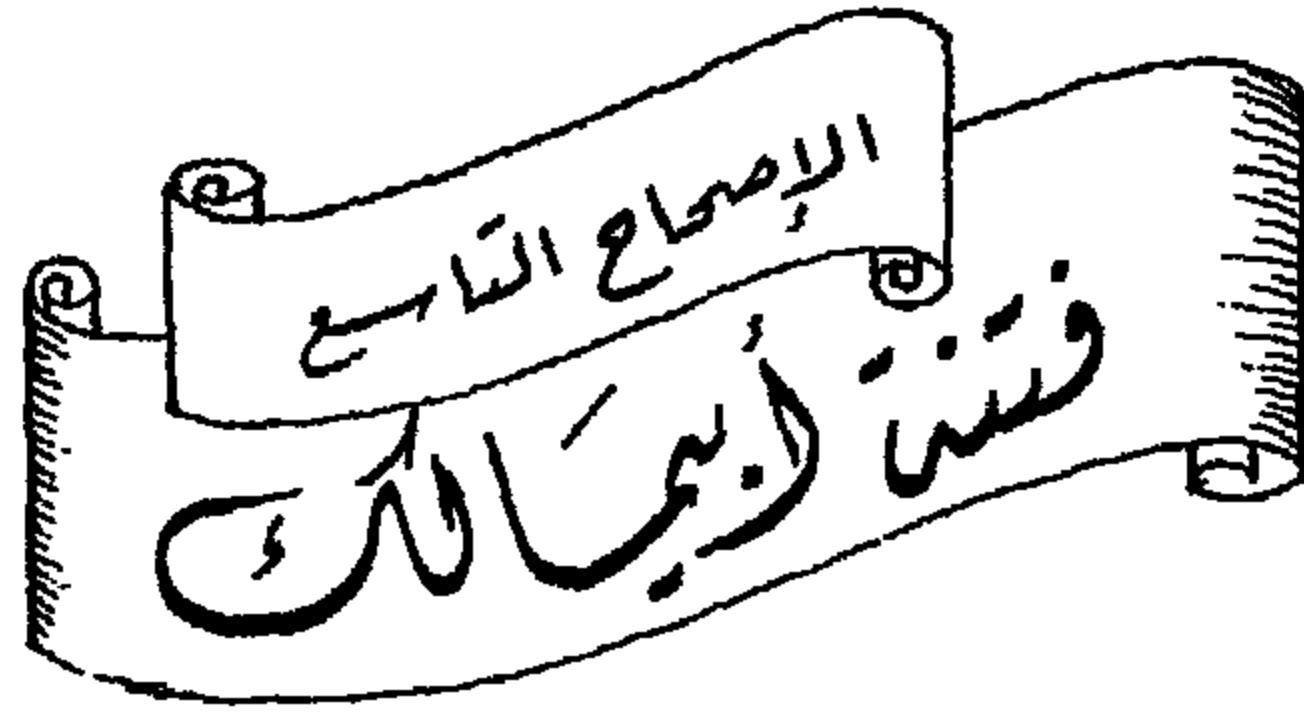 الإصحاح التاسع
فتنة أبيمالك